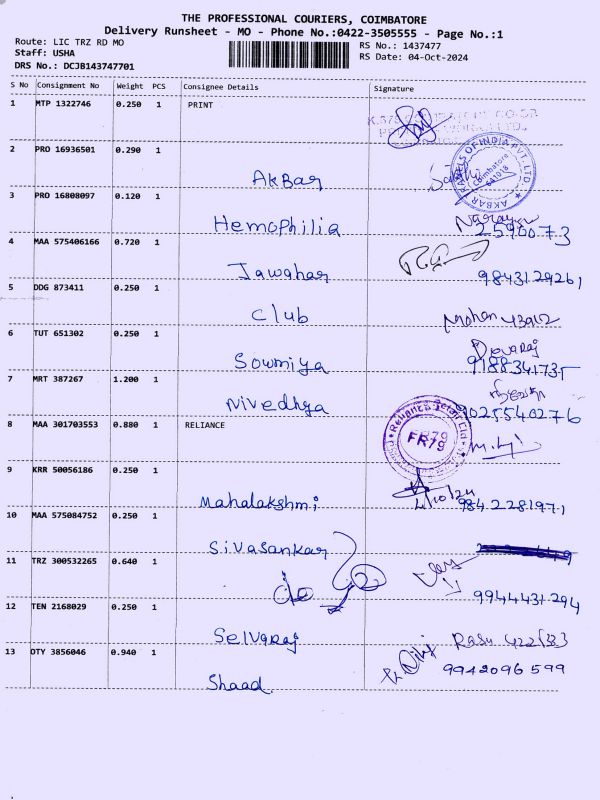 THE PROFESSIONAL COURIERS, COIMBATORE
Delivery Runsheet - MO - Phone No.:0422-3505555 - Page No.:1
Route: LIC TRZ RD MO
Staff: USHA
DRS No.: DCJB143747701
RS No.: 1437477
RS Date: 04-Oct-2024
S No Consignment No Weight PCS Consignee Details Signature
1 MTP 1322746 0.250 1 PRINT
2 PRO 16936501 0.290 1
AKBAR TRAVELS OF INDIA PVT. LTD.
Coimbatore
641018
AKBar
3 PRO 16808097 0.120 1
Narayan
Hemophilia 2590073
4 MAA 575406166 0.720 1
Jawahar 9843129261
5 DDG 873411 0.250 1
Club Mohan 43912
6 TUT 651302 0.250 1
Devaraj
Sowmiya 9188341735
7 MRT 387267 1.200 1
Nivedhya 9025540276
8 MAA 301703553 0.880 1 RELIANCE
Reliance Retail Ltd
FR79
9 KRR 50056186 0.250 1
4/10/24
Mahalakshmi 9842281971
10 MAA 575084752 0.250 1
Sivasankar
11 TRZ 300532265 0.640 1
9944431294
12 TEN 2168029 0.250 1
Selvaraj
13 OTY 3856046 0.940 1
9942096599
Shaad